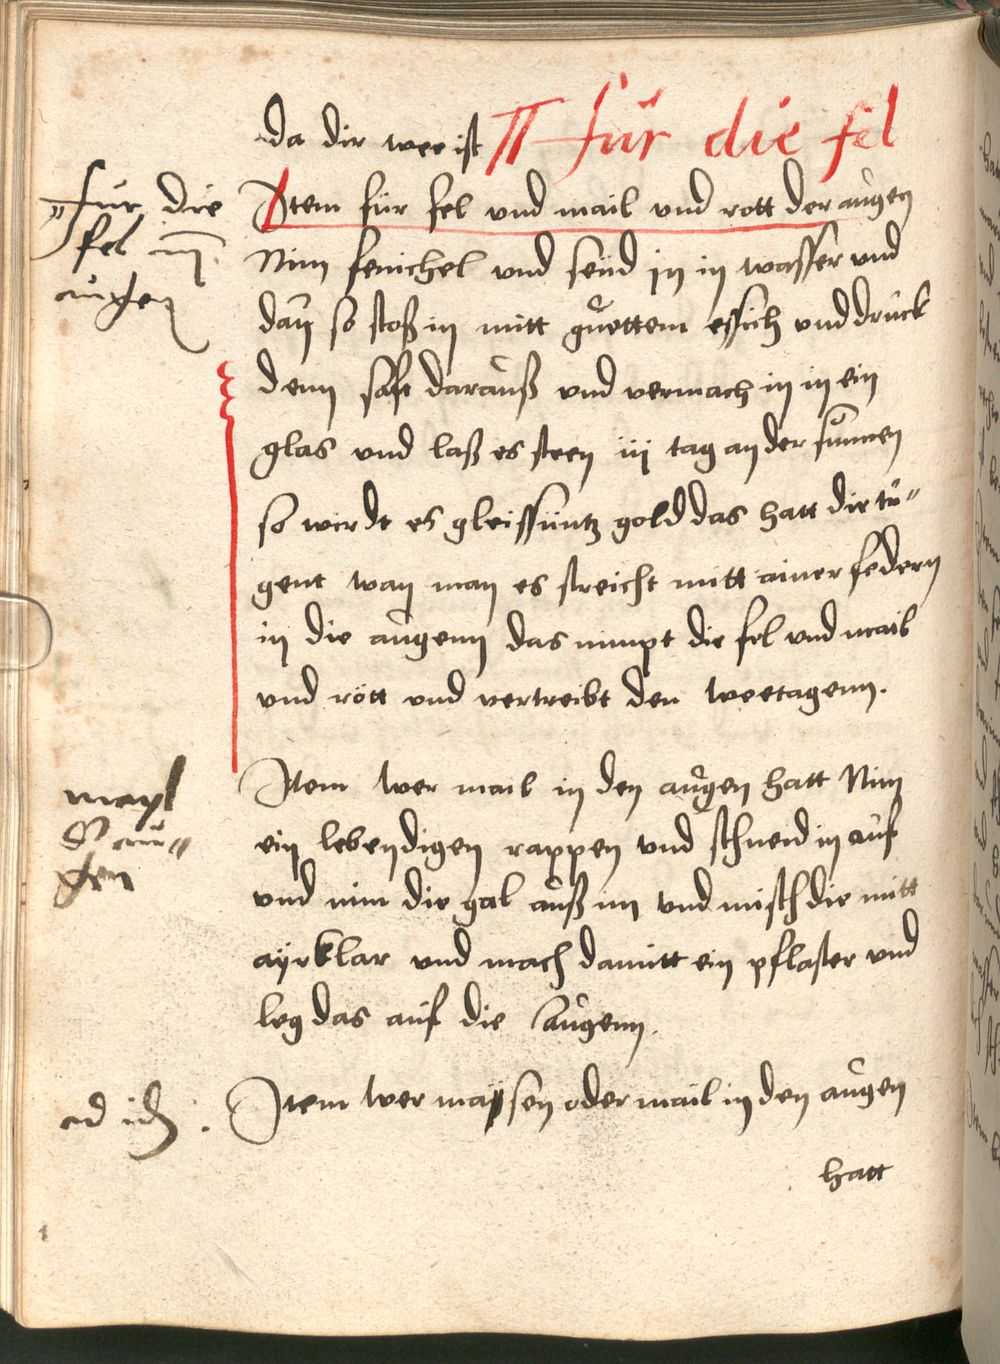 da dir wee ist für die fel
für die
fel in
augen
Item für fel vnd mail vnd rott der augen
Nim fenichel vnd seud in in wasser vnd
dan so stoß in mitt guettem essich vnd druck
denn saft darauß vnd vermach in in ein
glas vnd laß es steen iij tag an der sunnen
so wirdt es gleissüntz gold das hatt die tu〃
gent wan man es streicht mitt ainer federn
in die augenn das nimpt die fel vnd mail
vnd rött vnd vertreibt den weetagenn.
mayl
au〃
gen
Item wer mail in den augen hatt Nim
ein lebendigen rappen vnd schneid in auf
vnd nim die gal auß im vnd misch die mitt
ayrklar vnd mach damitt ein pflaster vnd
leg das auf die augenn.
ad id.
Item wer maysen oder mail in den augen
hatt